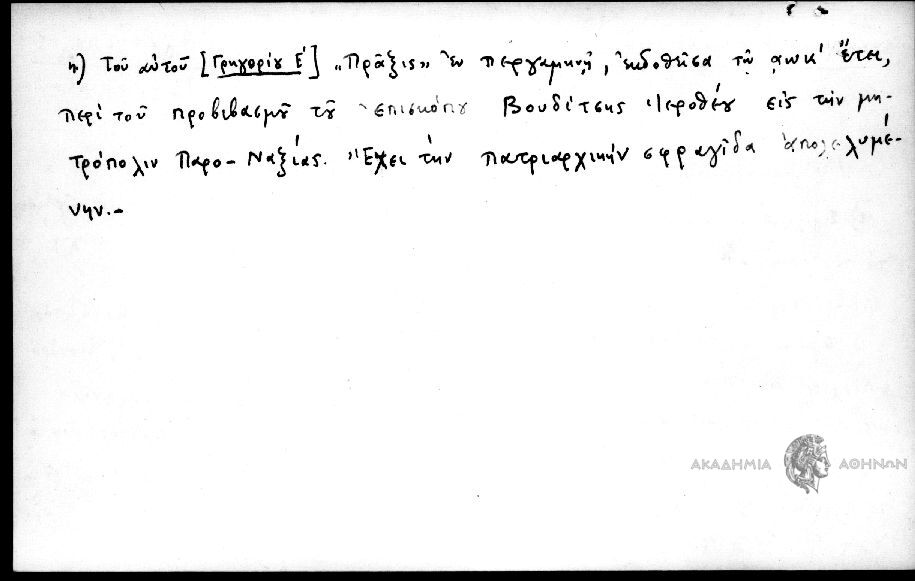 η) Τοῦ αὐτοῦ [Γρηγορίου Ε'] „Πρᾶξις" ἐν περγαμηνῇ, ἐκδοθεῖσα τῷ αωκ' ἔτει,
περὶ τοῦ προβιβασμοῦ τοῦ ἐπισκόπου Βουδίτσης Ἱεροθέου εἰς τὴν μη-
τρόπολιν Παρο-Ναξίας. Ἔχει τὴν πατριαρχικὴν σφραγῖδα ἀπολελυμέ-
νην.-
ΑΚΑΔΗΜΙΑ ΑΘΗΝΩΝ